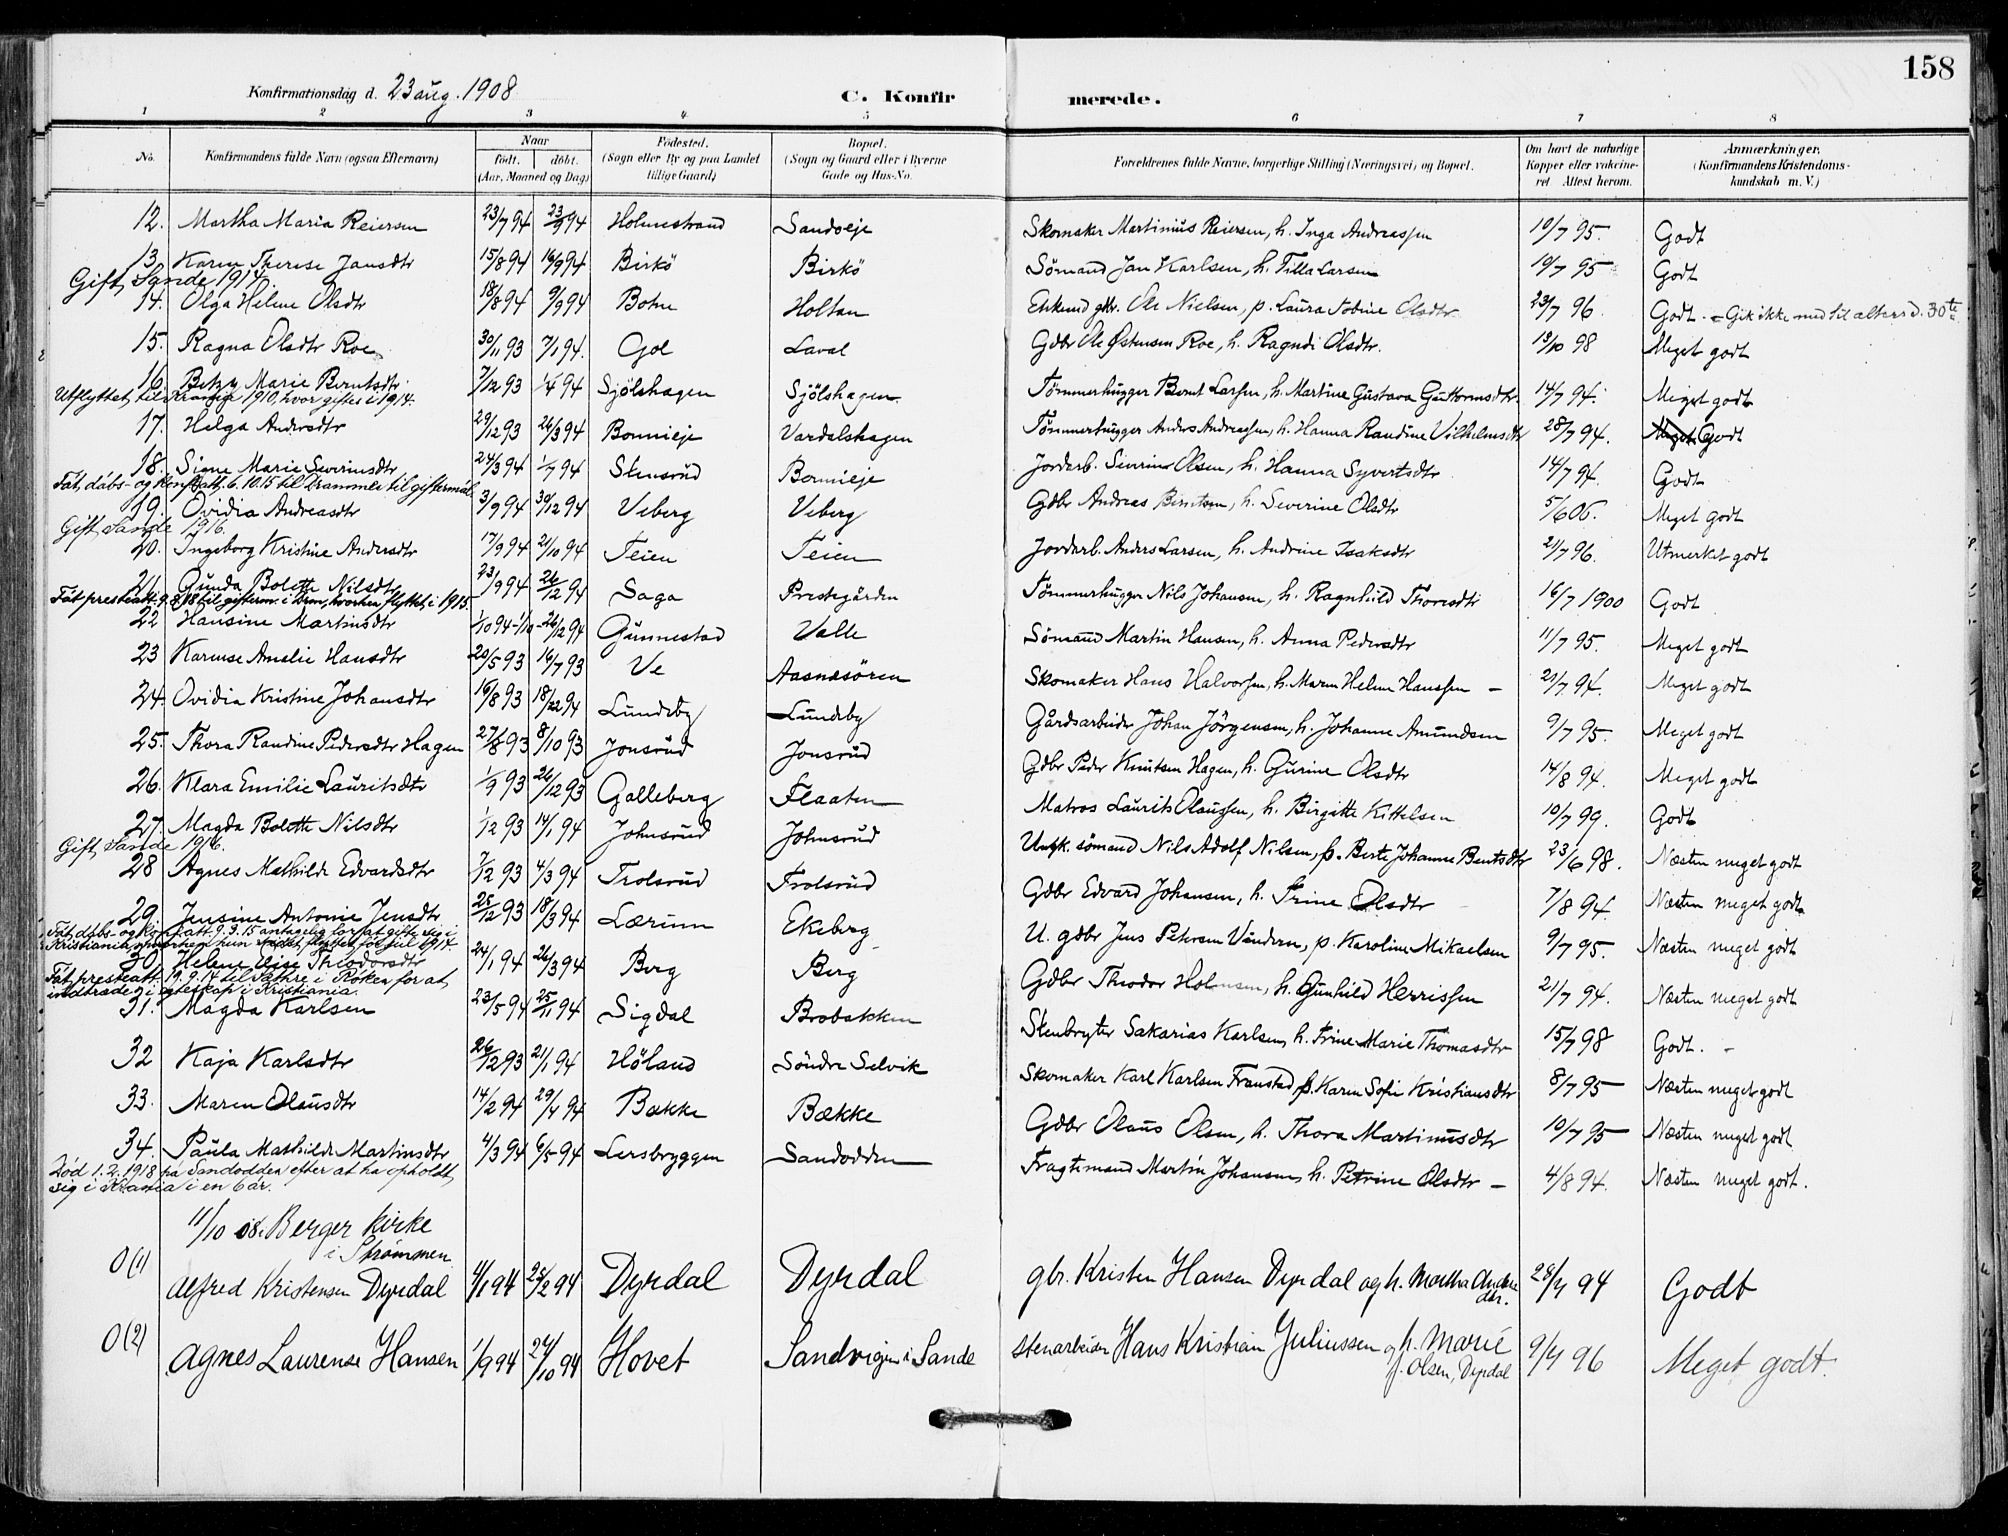 158
Konfirmationsdag d. 23 aug. 1908 C. Konfirmerede.
1 2 3 4 5 6 7 8
No. Konfirmandens fulde Navn (ogsaa Efternavn) Naar födt. döbt. (Aar, Maaned og Dag) Födested. (Sogn eller By og paa Landet tillige Gaard) Bopæl. (Sogn og Gaard eller i Byerne Gade og Hus-No. Forældrenes fulde Navne, borgerlige Stilling (Næringsvei) og Bopæl. Om havt de naturlige Kopper eller vakcineret. Attest herom. Anmærkninger, (Konfirmandens Kristendomskundskab m. V.)
12. Martha Maria Reiersen 23/7 94 23/9 94 Holmestrand Sandveje Skomaker Martinius Reiersen, h. Inga Andreassen 10/7 95. Godt
13. Karen Therese Jansdtr 15/8 94 16/9 94 Birkö Birkö Sömand Jan Karlsen, h. Tilla Larsen 10/7 95 Godt
Gift, Sande 1914.
14. Olga Helene Olsdtr 18/8 94 9/9 94 Bohn Holtan Enkemd gbr. Ole Nielsen, p. Laura Tobine Olsdtr 23/7 96 Godt. - Gik ikke med til alters d. 30te
15. Ragna Olsdtr Roe 30/11 93 7/1 94. Gol Laval Gdbr Ole Østensen Roe, h. Ragndi Olsdtr. 13/10 98 Meget godt
16. Betzy Marie Berntsdtr. 7/12 93 1/4 94 Sjölshagen Sjölshagen Tømmerhugger Bernt Larsen, h. Martine Gustava Guttormsdtr 14/7 94. Meget godt
Utflyttet til Krania 1910, hvor giftes i 1914.
17. Helga Andersdtr 29/12 93 26/3 94 Bonnieje Vardalshagen Tømmerhugger Anders Andreassen, h. Hanna Randine Vilhelmsdtr 28/7 94. Meget Godt
18. Signe Marie Severinsdtr 24/3 94 1/7 94 Stensrud Bonnieje Jordarb. Severin Olsen, h. Hanna Syvertsdtr 14/7 94. Godt
Fåt dåbs- og konf.att. 6.10.15 til Drammen til giftermål
19. Ovidia Andreasdtr 3/9 94 30/12 94 Veberg Veberg Gdbr Andreas Berntsen, h. Severine Olsdtr 5/6 06. Meget godt
Gift, Sande 1916.
20. Ingeborg Kristine Andersdtr 17/9 94 21/10 94 Teien Teien Jordarb. Anders Larsen, h. Andrine Isaksdtr 21/7 96. Utmerket godt
21. Gunda Bolette Nilsdtr 23/9 94 26/12 94 Saga Prestegården Tømmerhugger Nils Johansen, h. Ragnhild Thoresdtr 16/7 1900 Godt
Fåt presteatt. 9.8.18 til gifterm. i Dram, hvorhen flyttet i 1915.
22 Hansine Martinsdtr 1/10 94 26/12 94 Gunnestad Valle Sömand Martin Hansen, h. Anna Pedersdtr 11/7 95. Meget godt
23 Karense Amalie Hansdtr 20/5 93 16/7 93 Ve Aasnesören Skomaker Hans Halvorsen, h. Maren Helene Hanssen 21/7 94. Meget godt
24. Ovidia Kristine Johansdtr 16/8 93 18/22 94 Lundeby Lundeby Gårdsarbeider Johan Jörgensen, h. Johanne Amundsen 9/7 95. Meget godt
25. Thora Randine Pedersdtr Hagen 27/8 93 8/10 93 Jonsrud Jonsrud Gdbr Peder Knutsen Hagen, h. Gurine Olsdtr 14/8 94. Meget godt
26. Klara Emilie Lauritsdtr 1/9 93 26/12 93 Galleberg Flaaten Matros Laurits Olaussen, h. Birgitte Kittelsen 10/7 99. Godt
27. Magda Bolette Nilsdtr 1/12 93 14/1 94 Johnsrud Johnsrud Ungk. sömand Nils Adolf Nilsen, p. Berte Johanne Berntsdtr 23/6 98. Næsten meget godt
Gift, Sande 1916.
28 Agnes Mathilde Edvardsdtr 7/12 93 4/3 94 Trolsrud Trolsrud Gdbr Edvard Johansen, h. Trine Olsdtr 7/8 94 Næsten meget godt
29. Jensine Antonie Jensdtr 25/12 93 18/3 94 Lærum Ekeberg U. gdbr Jens Petersen Undern, p. Karoline Mikaelsen 9/7 95. Næsten meget godt
Fåt dåbs- og konf.att. 9.3.15 antagelig for at gifte sig i
Kristiania, hvorhen hun flyttet før jul 1914.
30. Helene Elise Theodorsdtr 24/1 94 26/3 94 Berg Berg Gdbr Theodor Holmsen, h. Gunhild Herrissen 21/7 94. Næsten meget godt
Fåt presteatt. 19.9.14 til Sætre i Röken for at
indtræde i egteskap i Kristiania.
31. Magda Karlsen 23/5 94 25/11 94 Sigdal Brobakken Stenbryter Sakarias Karlsen, h. Trine Marie Thomasdtr 15/7 98 Godt.
32 Kaja Karlsdtr 26/12 93 21/1 94 Höland Söndre Selvik Skomaker Karl Karlsen Franstad p. Karen Sofie Kristiansdtr 8/7 95 Næsten meget godt
33. Maren Olausdtr 14/2 94 29/4 94 Bække Bække Gdbr Olaus Olsen, h. Thora Martinusdtr 10/7 95 Næsten meget godt
34. Paula Mathilde Martinsdtr 4/3 94 6/5 94 Lersbryggen Sandodden Fragtemand Martin Johansen, h. Petrine Olsdtr 4/8 94. Næsten meget godt.
Död 1.2.1918 på Sandodden efter at ha opholdt
sig i Krania i en 6 år.
11/10 08. Berger kirke
i Strömmen
0(1) Alfred Kristensen Dyrdal 4/1 94 25/2 94 Dyrdal Dyrdal gbr. Kristen Hansen Dyrdal og h. Martha Andersdtr. 28/7 94 Godt
0(2) Agnes Laurense Hansen 1/9 94 24/10 94 Hovet Sandvigen i Sande stenarbeider Hans Kristian Juliussen og h. Marie J. Olsen, Dyrdal 9/7 96 Meget godt.